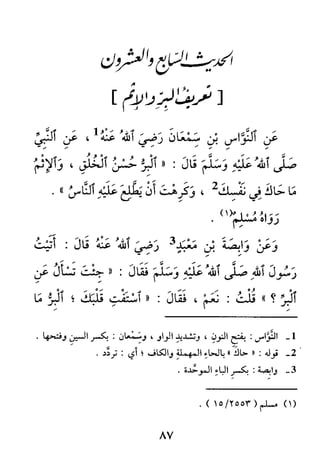 الحديث السابع والعشرون
[ تعريف البر والإثم ]
عَنِ ٱلنَّوَّاسِ بْنِ سِمْعَانَ رَضِيَ ٱللهُ عَنْهُ1 ، عَنِ ٱلنَّبِيِّ
صَلَّى ٱللهُ عَلَيْهِ وَسَلَّمَ قَالَ : « ٱلْبِرُّ حُسْنُ ٱلْخُلُقِ ، وَٱلإِثْمُ
مَا حَاكَ فِي نَفْسِكَ2 ، وَكَرِهْتَ أَنْ يَطَّلِعَ عَلَيْهِ ٱلنَّاسُ » .
رَوَاهُ مُسْلِمٌ(١) .
وَعَنْ وَابِصَةَ بْنِ مَعْبَدٍ3 رَضِيَ ٱللهُ عَنْهُ قَالَ : أَتَيْتُ
رَسُولَ ٱللهِ صَلَّى ٱللهُ عَلَيْهِ وَسَلَّمَ فَقَالَ : « جِئْتَ تَسْأَلُ عَنِ
ٱلْبِرِّ ؟ » قُلْتُ : نَعَمْ ، فَقَالَ : « ٱسْتَفْتِ قَلْبَكَ ؛ ٱلْبِرُّ مَا
1 ـ النَّوَّاس : بفتح النون ، وتشديد الواو ، وسِمْعان : بكسر السين وفتحها .
2 ـ قوله : « حاك » بالحاء المهملة والكاف ؛ أي : تردَّد .
3 ـ وابِصة : بكسر الباء الموحَّدة .
(١) مسلم ( ١٥/٢٥٥٣ ) .
٨٧